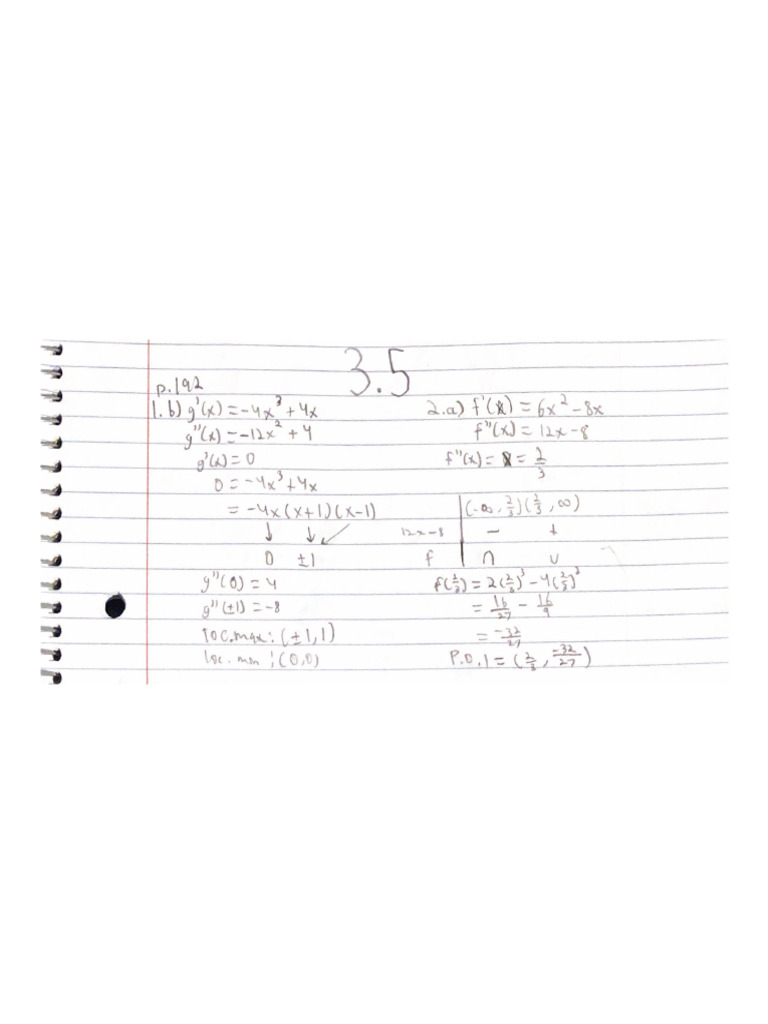 3.5
p.192
1.b) g'(x) = -4x³ + 4x
g''(x) = -12x² + 4
g'(x) = 0
0 = -4x³ + 4x
= -4x(x+1)(x-1)
↓ ↓ ↙
0 ±1
g''(0) = 4
g''(±1) = -8
loc.max: (±1,1)
loc. min : (0,0)
2.a) f'(x) = 6x² - 8x
f''(x) = 12x - 8
f''(x) = x = 2/3
(-∞, 2/3)(2/3, ∞)
12x-8 - +
f ∩ ∪
f(2/3) = 2(2/3)³ - 4(2/3)²
= 16/27 - 16/9
= -32/27
P.O.I = (2/3, -32/27)